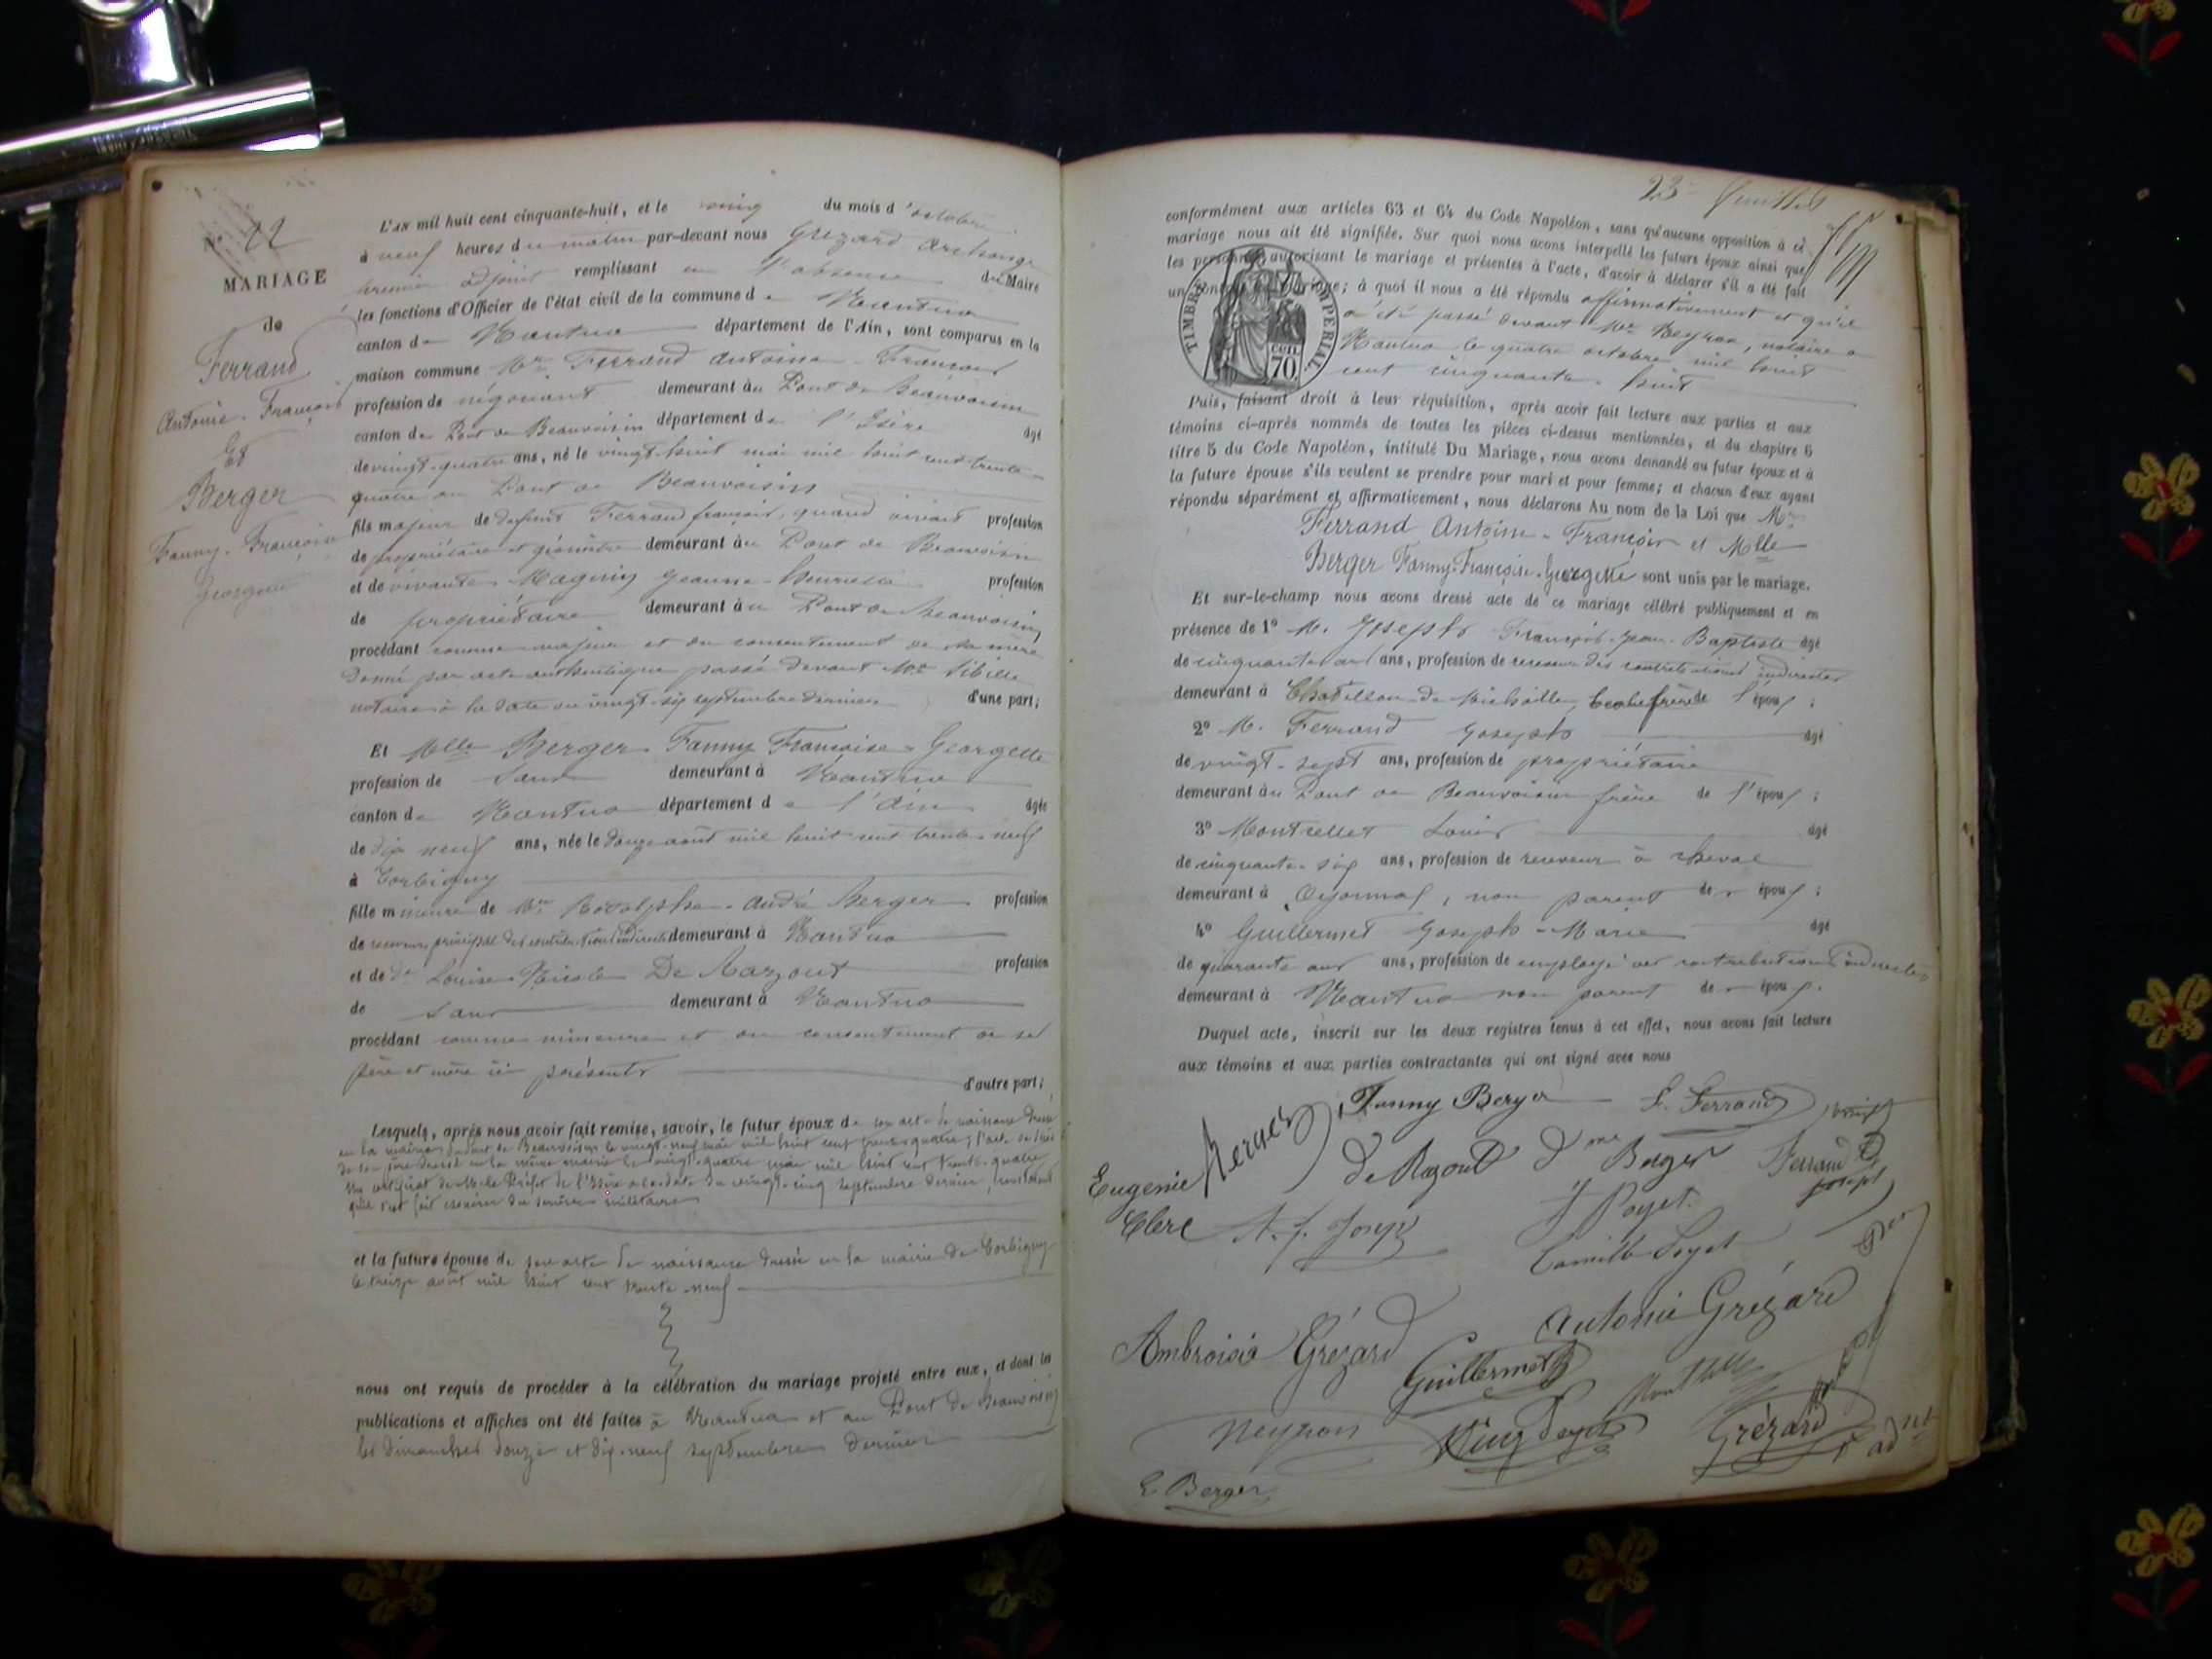 N° 22
MARIAGE
de
Ferrand
Antoine-François
Et
Berger
Fanny-Françoise
Georgette
L'AN mil huit cent cinquante-huit, et le cinq du mois d'octobre
à neuf heures du matin par-devant nous Grézard Archange
premier adjoint remplissant en l'absence du Maire
les fonctions d'Officier de l'état civil de la commune de Nantua
canton de Nantua département de l'Ain, sont comparus en la
maison commune Mr Ferrand Antoine-François
profession de négociant demeurant au Pont de Beauvoisin
canton de Pont de Beauvoisin département de l'Isère âgé
de vingt-quatre ans, né le vingt-huit mai mil huit cent trente
quatre au Pont de Beauvoisin
fils majeur de défunt Ferrand françois, quand vivait profession
de propriétaire et géomètre demeurant au Pont de Beauvoisin
et de vivante Magnin Jeanne profession
de propriétaire demeurant au Pont de Beauvoisin
procédant comme majeur et du consentement de sa mère
donné par acte authentique passé devant Me Sibille
notaire à la date du vingt-six septembre dernier d'une part;
Et Melle Berger Fanny Françoise-Georgette
profession de sans demeurant à Nantua
canton de Nantua département de l'Ain âgée
de dix neuf ans, née le douze août mil huit cent trente-neuf
à Corbigny
fille mineure de Mr Rodolphe-André Berger profession
de receveur principal des contributions indirectes demeurant à Nantua
et de De Louise Nicole De Razout profession
de sans demeurant à Nantua
procédant comme mineure et du consentement de ses
père et mère ici présents
d'autre part;
Lesquels, après nous avoir fait remise, savoir, le futur époux de son acte de naissance dressé
en la mairie du Pont de Beauvoisin le vingt-neuf mai mil huit cent trente-quatre; l'acte de décès
de son père dressé en la même mairie le vingt-quatre mai mil huit cent trente-quatre
un certificat de Mr le Préfet de l'Isère à la date du vingt-cinq septembre dernier, constatant
qu'il s'est fait exonérer du service militaire
et la future épouse de son acte de naissance dressé en la mairie de Corbigny
le treize août mil huit cent trente-neuf
nous ont requis de procéder à la célébration du mariage projeté entre eux, et dont les
publications et affiches ont été faites à Nantua et au Pont de Beauvoisin
les dimanches douze et dix-neuf septembre dernier
23e feuillet
conformément aux articles 63 et 64 du Code Napoléon, sans qu'aucune opposition à ce
mariage nous ait été signifiée. Sur quoi nous avons interpellé les futurs époux ainsi que
les personnes autorisant le mariage et présentes à l'acte, d'avoir à déclarer s'il a été fait
un contrat de mariage; à quoi il nous a été répondu affirmativement et qu'il
a été passé devant Me Neyron, notaire à
Nantua le quatre octobre mil huit
cent cinquante-huit
TIMBRE IMPERIAL
70 cen.
Puis, faisant droit à leur réquisition, après avoir fait lecture aux parties et aux
témoins ci-après nommés de toutes les pièces ci-dessus mentionnées, et du chapitre 6
titre 5 du Code Napoléon, intitulé Du Mariage, nous avons demandé au futur époux et à
la future épouse s'ils veulent se prendre pour mari et pour femme; et chacun d'eux ayant
répondu séparément et affirmativement, nous déclarons Au nom de la Loi que Mr
Ferrand Antoine-François et Melle
Berger Fanny-Françoise-Georgette sont unis par le mariage.
Et sur-le-champ nous avons dressé acte de ce mariage célébré publiquement et en
présence de 1° M. Joseph François-Jean-Baptiste âgé
de cinquante ans, profession de receveur des contributions indirectes
demeurant à Chatillon-de-Michaille, beau frère de l'époux;
2° M. Ferrand Joseph âgé
de vingt-sept ans, profession de propriétaire
demeurant au Pont de Beauvoisin frère de l'époux;
3° Montrellet Louis âgé
de cinquante-six ans, profession de receveur à cheval
demeurant à Oyonnax, non parent des époux;
4° Guillermet Joseph-Marie âgé
de quarante ans, profession de employé des contributions indirectes
demeurant à Nantua non parent des époux.
Duquel acte, inscrit sur les deux registres tenus à cet effet, nous avons fait lecture
aux témoins et aux parties contractantes qui ont signé avec nous
Berger Fanny Berger F. Ferrand
de Razout De Berger Ferrand Joseph
Eugenie Clerc
Camille
Ambroisie Grézard Antonie Grézard
Guillermet
Neyron
Grézard 1er adnt
E Berger